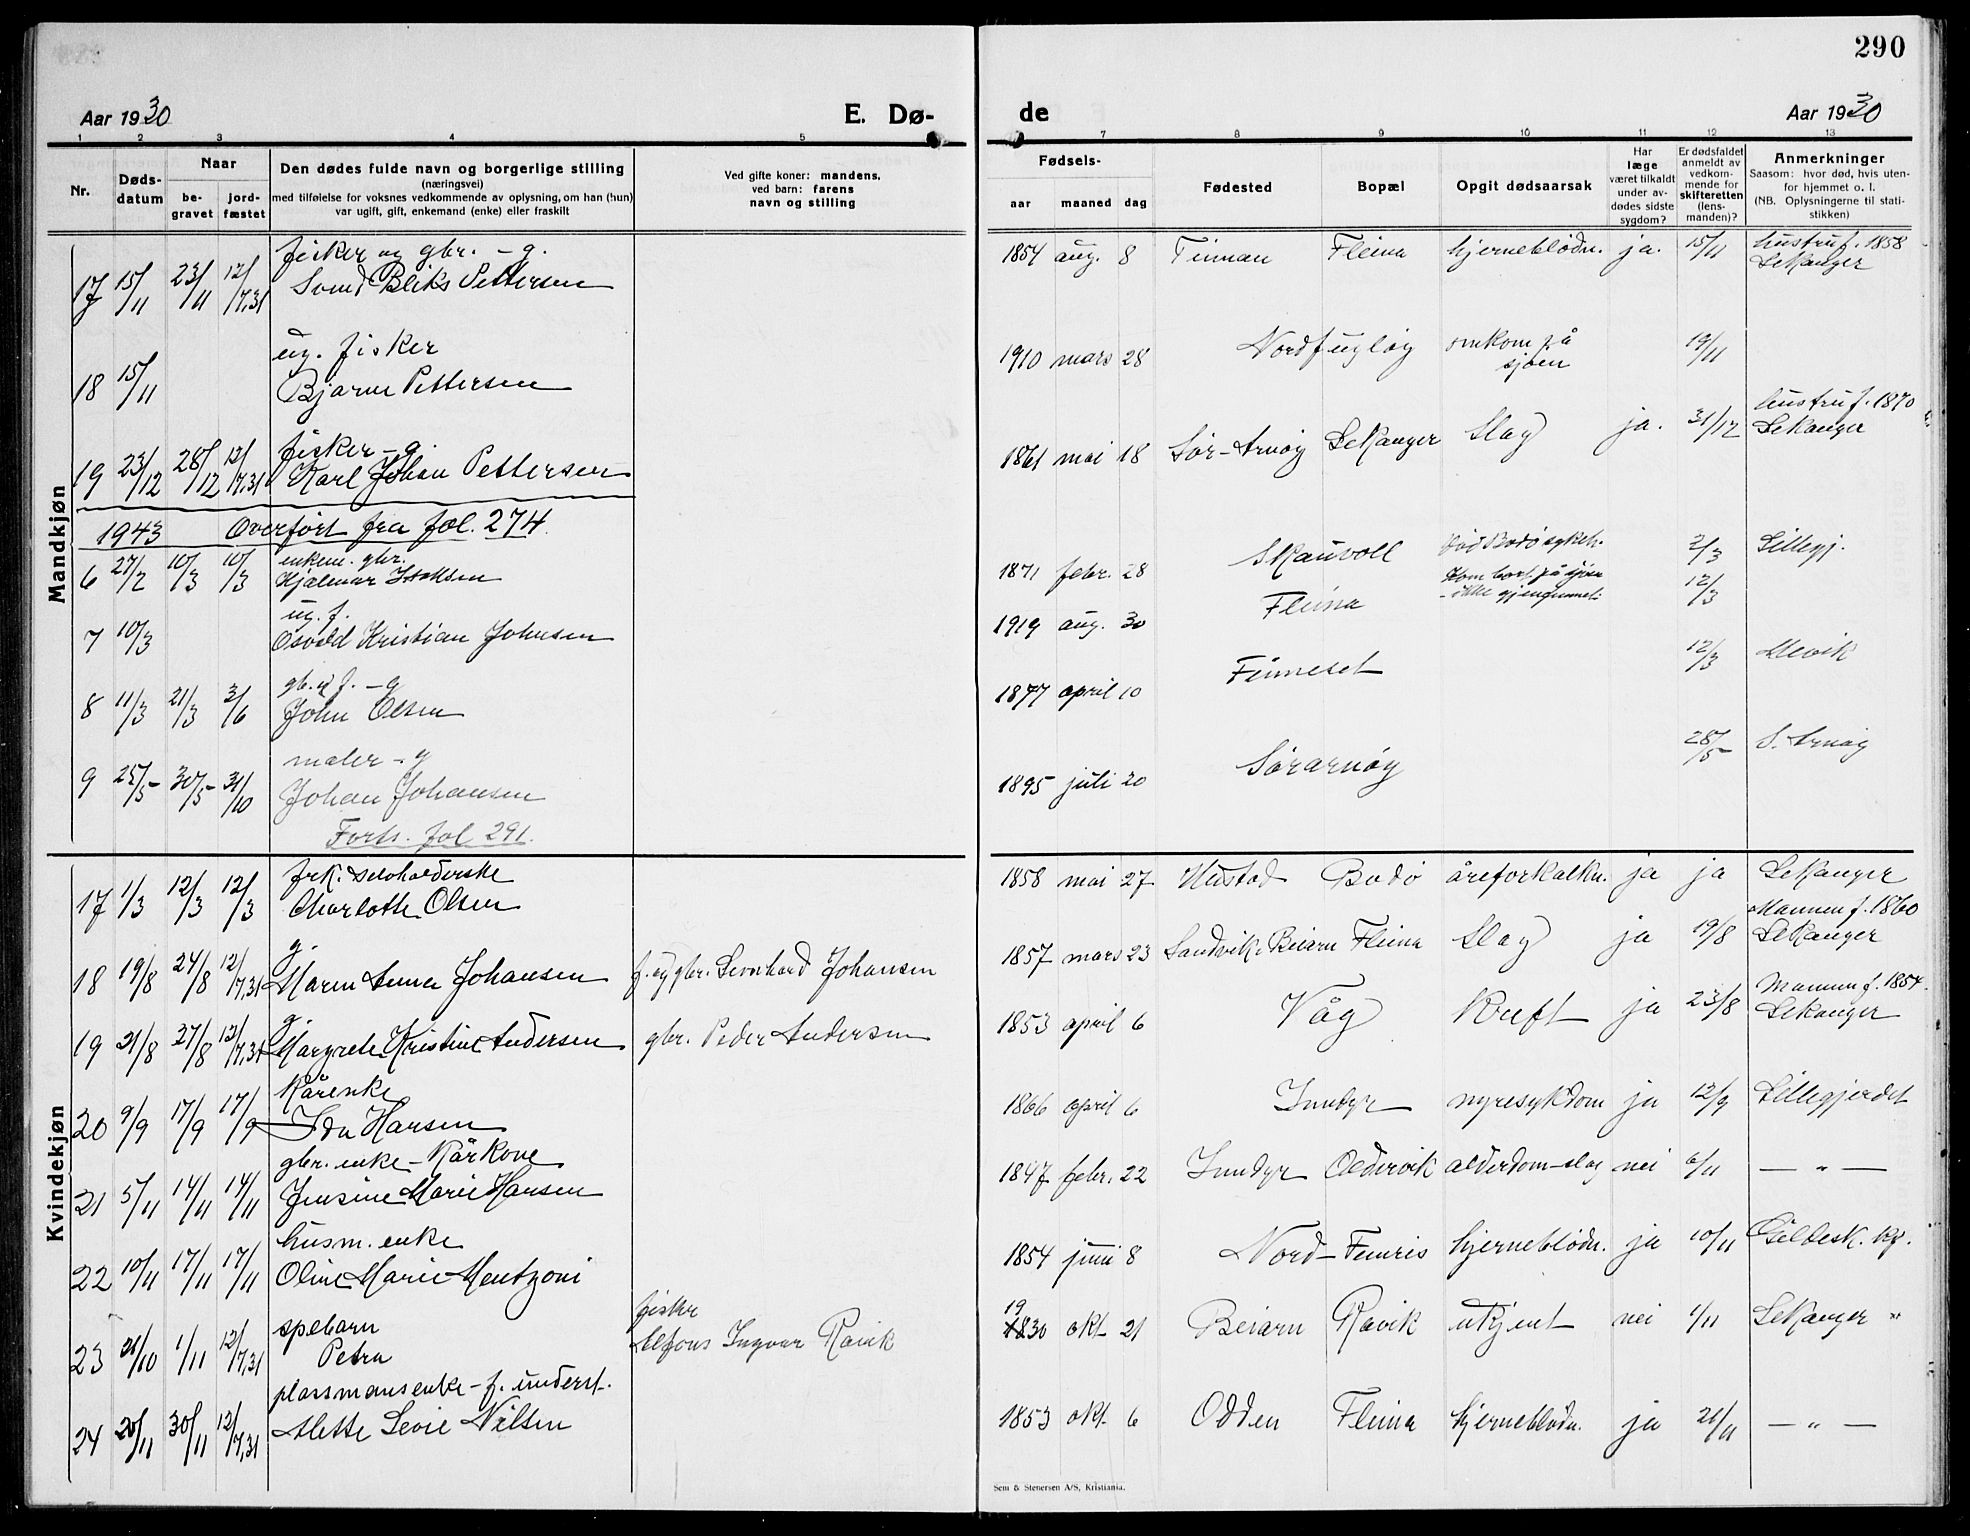 290
Aar 1930 E. Dø- de Aar 1930
1 2 3 4 5 7 8 9 10 11 12 13
Nr. Døds-datum Naar be-gravet jord-fæstet Den dødes fulde navn og borgerlige stilling (næringsvei) med tilføielse for voksnes vedkommende av oplysning, om han (hun) var ugift, gift, enkemand (enke) eller fraskilt Ved gifte koner: mandens, ved barn: farens navn og stilling Fødsels- aar maaned dag Fødested Bopæl Opgit dødsaarsak Har læge været tilkaldt under av-dødes sidste sygdom? Er dødsfaldet anmeldt av vedkom-mende for skifteretten (lens-manden)? Anmerkninger Saasom: hvor død, hvis uten-for hjemmet o. l. (NB. Oplysningerne til stati-stikken)
Mandkjøn
fisker og gbr. - g. hustru f. 1858
17 15/11 23/11 12/7,31 Svend Bliks Pettersen 1854 aug. 8 Finnan Fleina hjerneblødn. ja. 15/11 Lekanger
ug. fisker
18 15/11 Bjarne Pettersen 1910 mars 28 Nordfugløy omkom på sjøen 19/11
fisker - g. hustru f. 1870
19 23/12 28/12 12/7,31 Karl Johan Pettersen 1861 mai 18 Sør-Arnøy Lekanger Slag ja. 31/12 Lekanger
1943 Overført fra fol. 274.
enkem. gbr.
6 27/2 10/3 10/3 Hjalmar Isaksen 1871 febr. 28 Skauvoll Död Bodø sykeh. 2/3 Lillegj.
ug. f.
7 10/3 Osvald Kristian Johnsen 1919 aug. 30 Fleina Kom bort på sjøen - ikke gjenfunnet. 12/3
gb. og f. - g
8 11/3 21/3 3/6 John Olsen 1877 april 10 Finneset 12/3 Mevik
maler - g
9 25/5 30/5 31/10 Johan Johansen 1895 juli 20 Sørarnøy 28/5 S. Arnøy
Forts. fol 291.
Kvindekjøn
frk. selvholderske
17 1/3 12/3 12/3 Charlotte Olsen 1858 mai 27 Hustad Bodø åreforkalkn. ja ja Lekanger
g. Mannen f. 1860
18 19/8 24/8 12/7,31 Maren Anna Johansen f. og gbr. Leonhard Johansen 1857 mars 23 Sandvik. Beiarn Fleina Slag ja 19/8 Lekanger
g. Mannen f. 1854.
19 21/8 27/8 12/7,31 Margrete Kristine Andersen gbr. Peder Andersen 1853 april 6 Våg Kreft ja 23/8 Lekanger
Kårenke
20 9/9 17/9 17/9 Ida Hansen 1866 april 6 Inndyr nyresykdom ja 12/9 Lillegjerdet
gbr. enke - Kårkone
21 5/11 14/11 14/11 Jensine Marie Hansen 1847 febr. 22 Inndyr Oldervik alderdom-slag nei 6/11 — " —
husm. enke
22 10/11 17/11 17/11 Oline Marie Mentzoni 1854 juni 8 Nord-Femris hjerneblødn. ja 10/11 Gildesk. kg.
spebarn fisker
23 21/10 1/11 12/7,31 Petra Alfons Ingvar Råvik 1930 okt. 21 Beiarn Råvik ukjent nei 1/11 Lekanger "
plassmansenke - f. underst.
24 20/11 30/11 12/7,31 Mette Sevie Nilsen 1853 okt. 6 Odden Fleina hjerneblødn. ja 21/11 — " —
Sem & Stenersen A/S, Kristiania.